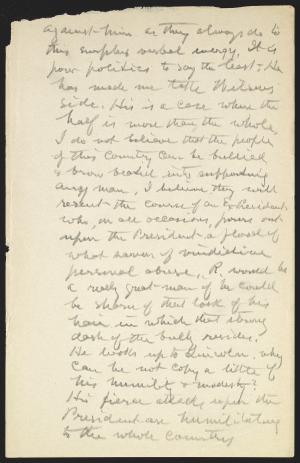 against him as they always do to
this surplus verbal energy. It is
poor politics to say the least; He
has made me take Wilsons
side. His is a case where the
half is more than the whole.
I do not believe that the people
of this country can be bullied
& brow beated into supporting
any man, I believe they will
resent the course of an Ex President
who, on all occasions, pours out
upon the President a flood of
what savors of vindictive
personal abuse, R. would be
a really great man if he could
be shorn of that lock of his
hair in which that strong
dash of the bully resides.
He looks up to Lincoln, why
can he not copy a little of
his humility & modesty?
His fierce attacks upon the
President are humiliating
to the whole country